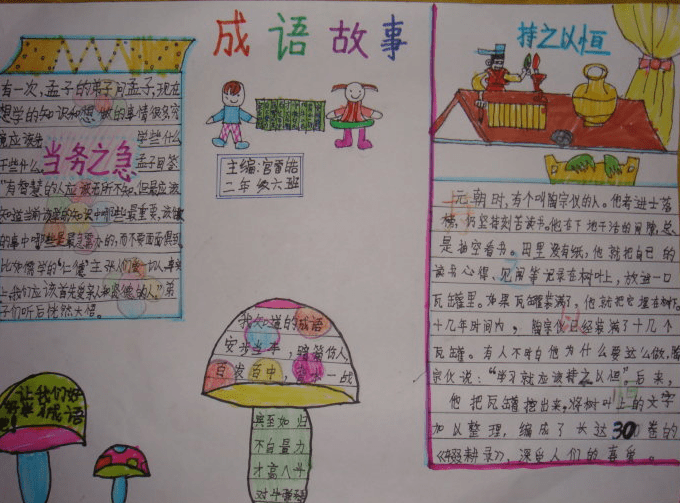 成语故事
主编:宫晋皓
二年级六班
当务之急
有一次,孟子的弟子问孟子,现在
想学的知识和想做的事情很多,究
竟应该先 学些什么
干些什么。 孟子回答
"有智慧的人应该无所不知,但最应该
知道当前该
的事中哪些是最 要办的,而不要面面俱到
比如儒学的"仁德"主张人们爱一切人,事实
上,我们应该首先爱亲人和贤德的人"弟
子们听后恍然大悟。
持之以恒
元朝时,有个叫陶宗仪的人。他考进士落
榜,仍坚持刻苦读书。他在下地干活的间隙,总
是抽空看书。田里没有纸,他就把自己的
读书心得、见闻等记录在树叶上,放进一口
瓦罐里。如果瓦罐装满了,他就把它埋在树下。
十几年时间内,陶宗仪已经装满了十几个
瓦罐。有人不明白他为什么要这么做,陶
宗仪说:"学习就应该持之以恒"。后来,
他把瓦罐挖出来,将树叶上的文字
加以整理,编成了长达30卷的
《辍耕录》,深受人们的喜爱。
我知道的成语
安步当车,骑 伤人
百发百中, 一战
宾至如归
不自量力
才高八斗
让我们好
成语